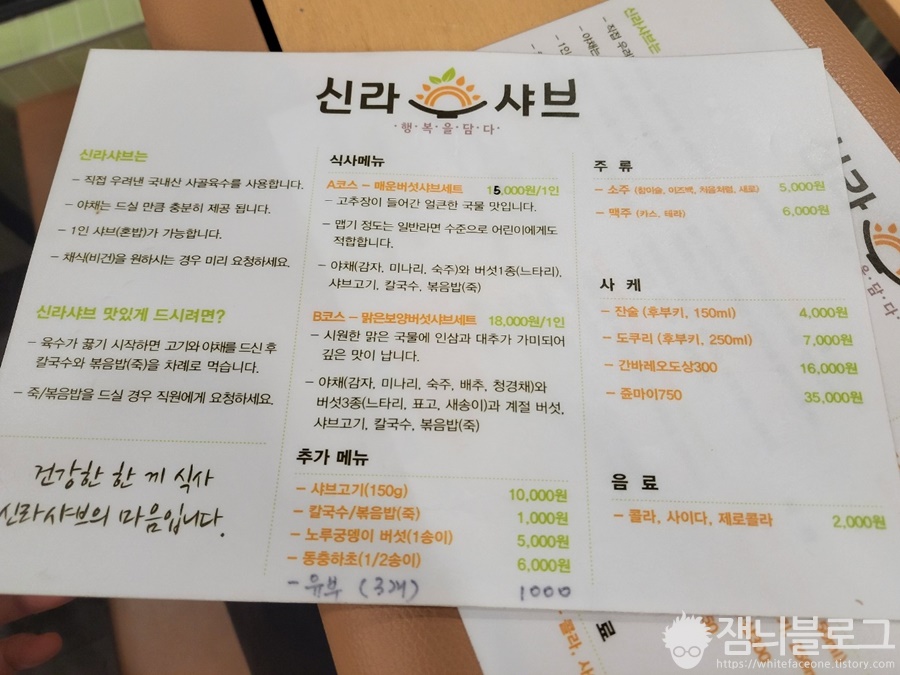 신라 샤브
·행·복·을·담·다·
신라샤브는
- 직접 우려낸 국내산 사골육수를 사용합니다.
- 야채는 드실 만큼 충분히 제공 됩니다.
- 1인 샤브(혼밥)가 가능합니다.
- 채식(비건)을 원하시는 경우 미리 요청하세요.
신라샤브 맛있게 드시려면?
- 육수가 끓기 시작하면 고기와 야채를 드신 후
칼국수와 볶음밥(죽)을 차례로 먹습니다.
- 죽/볶음밥을 드실 경우 직원에게 요청하세요.
건강한 한 끼 식사
신라샤브의 마음입니다.
식사메뉴
A코스 - 매운버섯샤브세트 15,000원/1인
- 고추장이 들어간 얼큰한 국물 맛입니다.
- 맵기 정도는 일반라면 수준으로 어린이에게도
적합합니다.
- 야채(감자, 미나리, 숙주)와 버섯1종(느타리),
샤브고기, 칼국수, 볶음밥(죽)
B코스 - 맑은보양버섯샤브세트 18,000원/1인
- 시원한 맑은 국물에 인삼과 대추가 가미되어
깊은 맛이 납니다.
- 야채(감자, 미나리, 숙주, 배추, 청경채)와
버섯3종(느타리, 표고, 새송이)과 계절 버섯,
샤브고기, 칼국수, 볶음밥(죽)
추가 메뉴
- 샤브고기(150g) 10,000원
- 칼국수/볶음밥(죽) 1,000원
- 노루궁뎅이 버섯(1송이) 5,000원
- 동충하초(1/2송이) 6,000원
- 유부 (3개) 1000
주 류
- 소주 (참이슬, 이즈백, 처음처럼, 새로) 5,000원
- 맥주 (카스, 테라) 6,000원
사 케
- 잔술 (후부키, 150ml) 4,000원
- 도쿠리 (후부키, 250ml) 7,000원
- 간바레오도상300 16,000원
- 쥰마이750 35,000원
음 료
- 콜라, 사이다, 제로콜라 2,000원
신라샤브는
- 직접 우려
- 1인
- 야채는
잼늬블로그
https://whitefaceone.tistory.com